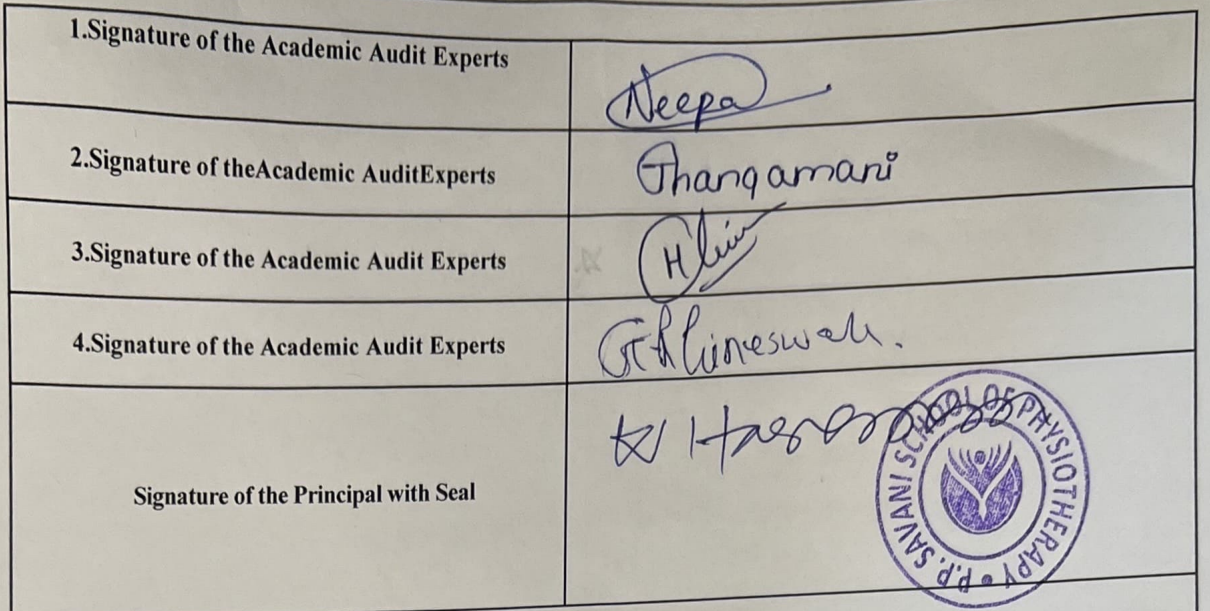 1.Signature of the Academic Audit Experts
Neepa
2.Signature of theAcademic AuditExperts
Thangamani
3.Signature of the Academic Audit Experts
H
4.Signature of the Academic Audit Experts
Signature of the Principal with Seal
P.P. SAVANI SCHOOL OF PHYSIOTHERAPY